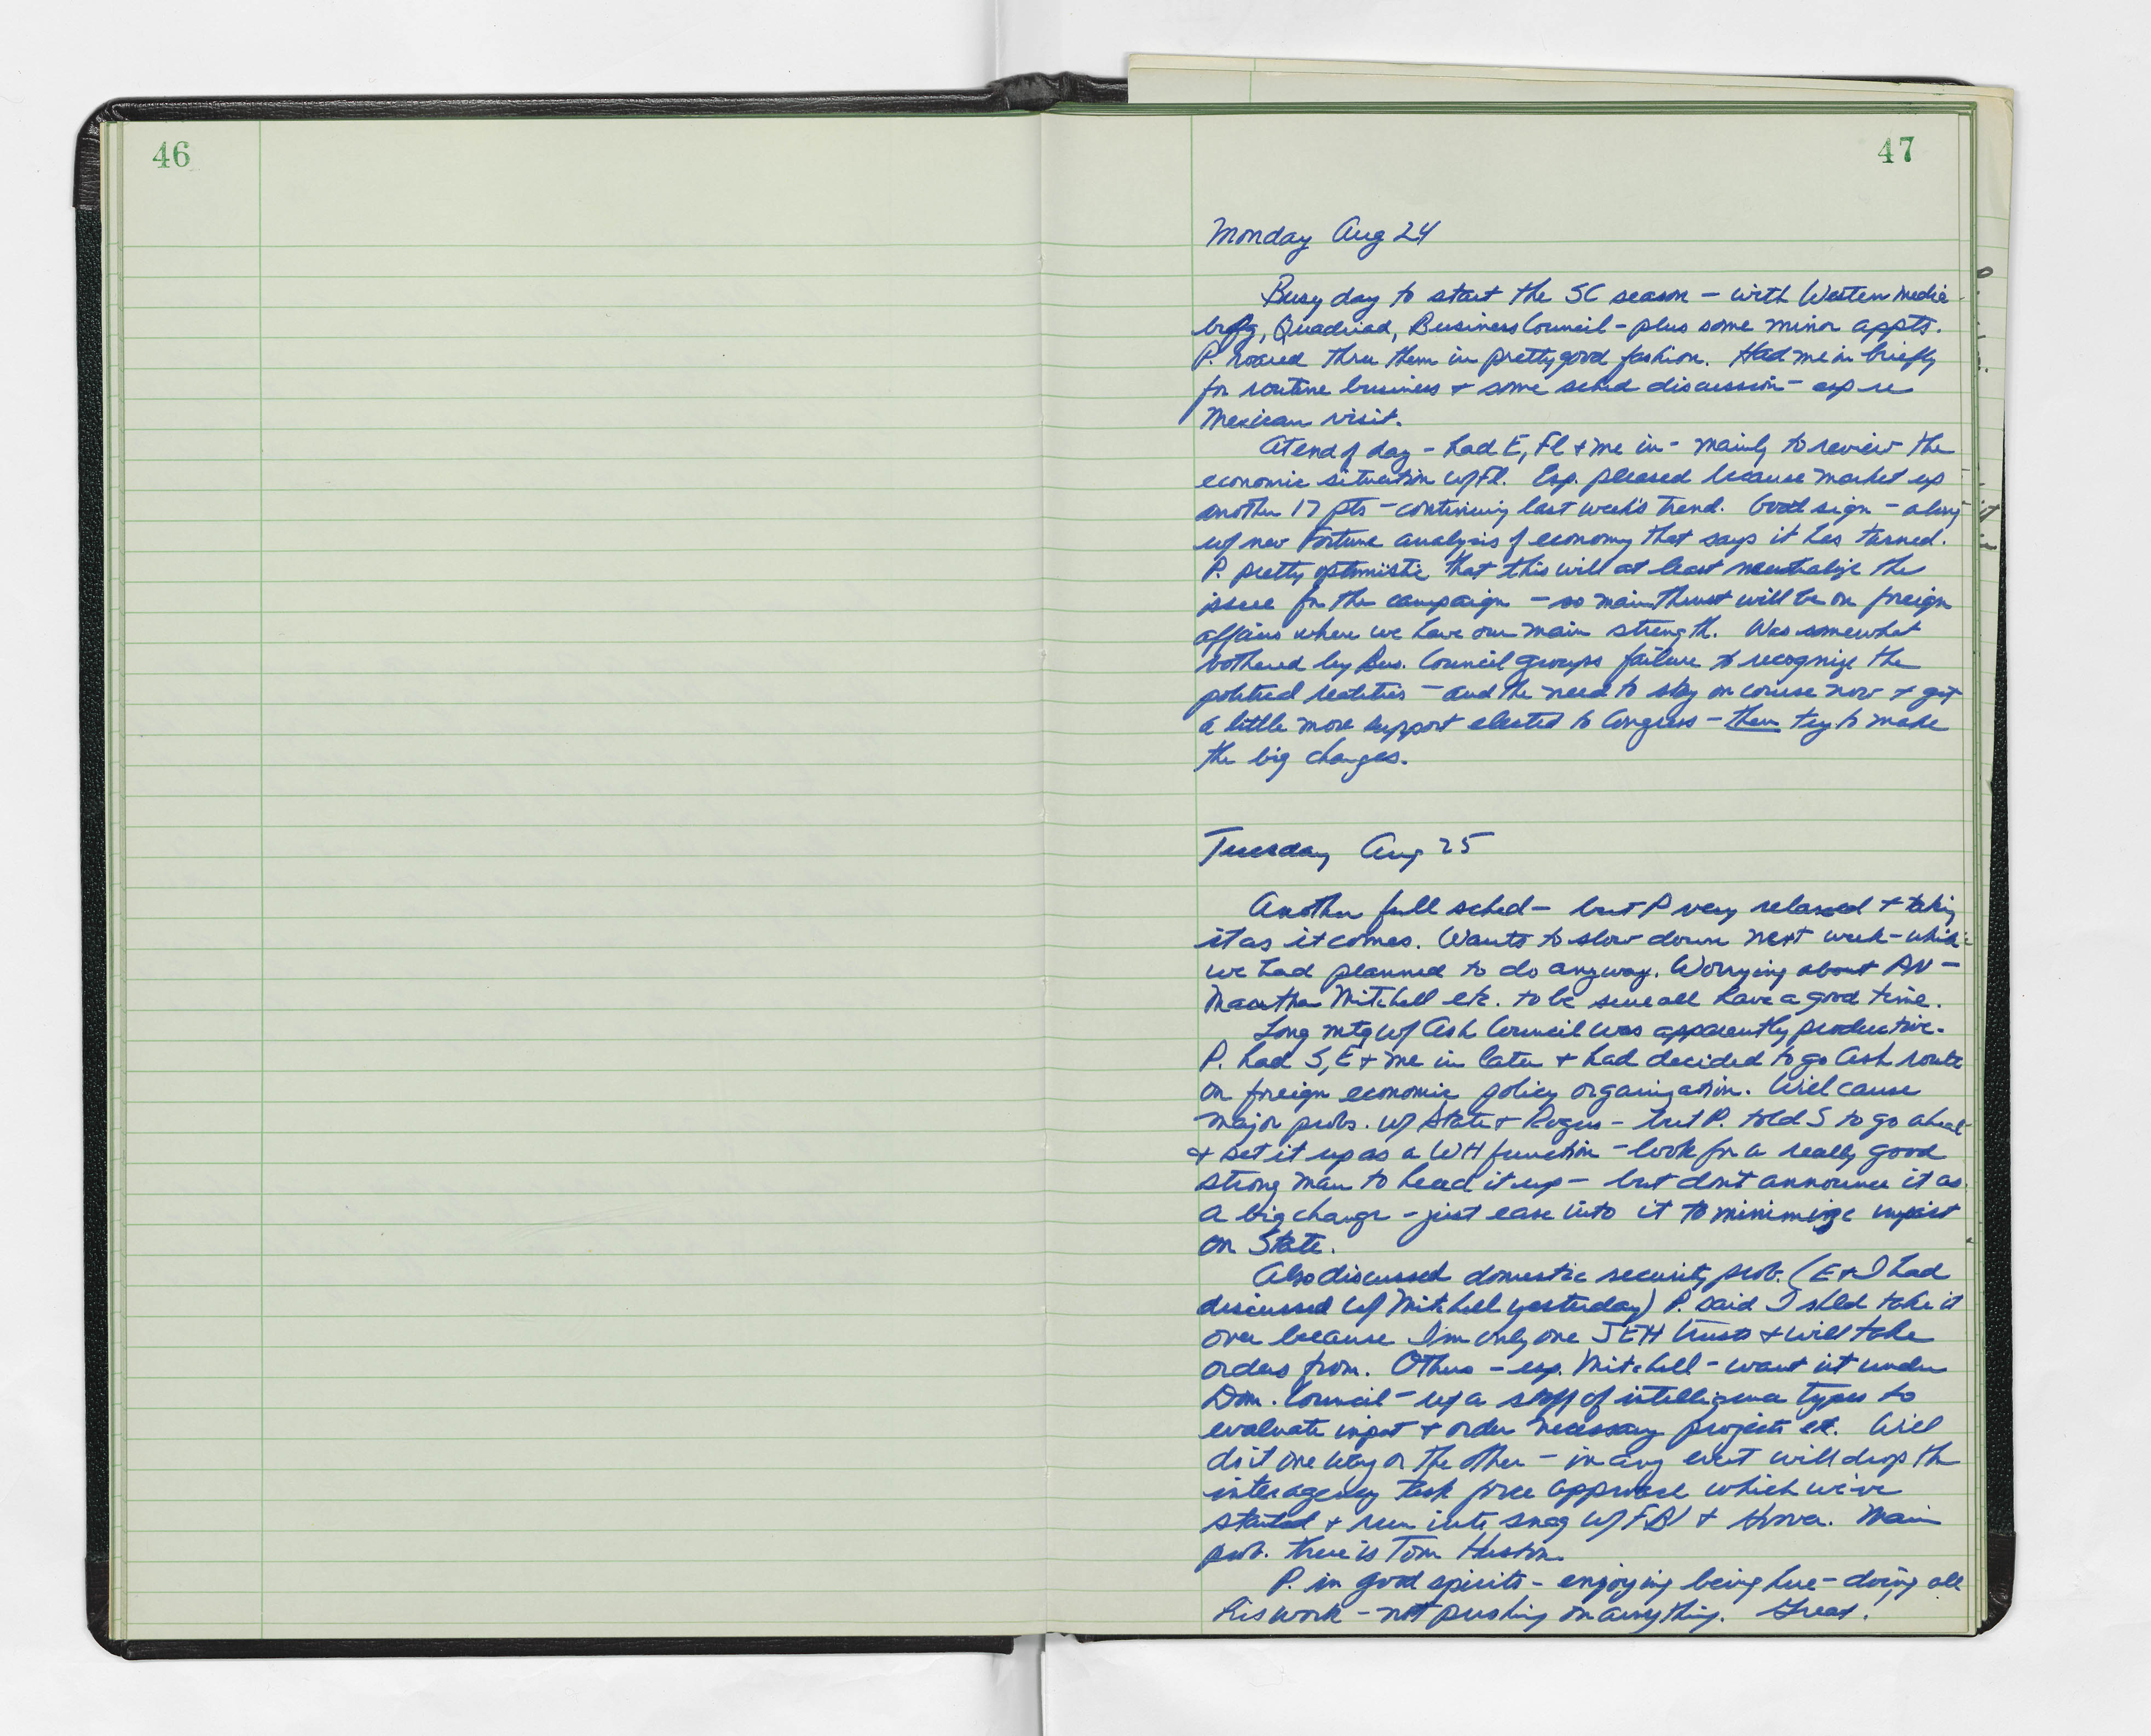 46
47
Monday Aug 24
Busy day to start the SC season - with Western media
brfg, Quadriad, Business Council - plus some minor appts.
P. roared thru them in pretty good fashion. Had me in briefly
for routine business + some sched discussion - esp re
Mexican visit.
At end of day - had E, Fl + me in - mainly to review the
economic situation w/Fl. Esp. pleased because market up
another 17 pts - continuing last week's trend. Good sign - along
w/ new Fortune analysis of economy that says it has turned.
P. pretty optimistic that this will at least neutralize the
issue for the campaign - so main thrust will be on foreign
affairs where we have our main strength. Was somewhat
bothered by Bus. Council groups failure to recognize the
political realities - and the need to stay on course now + get
a little more support elected to Congress - then try to make
the big changes.
Tuesday Aug 25
Another full sched - but P very relaxed + taking
it as it comes. Wants to slow down next week - which
we had planned to do anyway. Worrying about
Martha Mitchell etc. to be sure all have a good time.
Long mtg w/ Ash Council was apparently productive.
P. had S, E + me in later + had decided to go Ash route
on foreign economic policy organization. Will cause
major probs. w/ State + Rogers - but P. told S to go ahead
+ set it up as a WH function - look for a really good
strong man to head it up - but don't announce it as
a big change - just ease into it to minimize impact
on State.
Also discussed domestic security prob. (E + I had
discussed w/ Mitchell yesterday) P. said I shld take it
over because I'm only one JEH trusts + will take
orders from. Others - esp. Mitchell - want it under
Dom. Council - w/ a staff of intelligence types to
evaluate input + order necessary projects etc. Will
do it one way or the other - in any event will drop the
interagency task force approach which we've
started + run into snag w/ FBI + Hoover. Main
prob. there is Tom Huston.
P. in good spirits - enjoying being here - doing all
his work - not pushing on anything. Great!